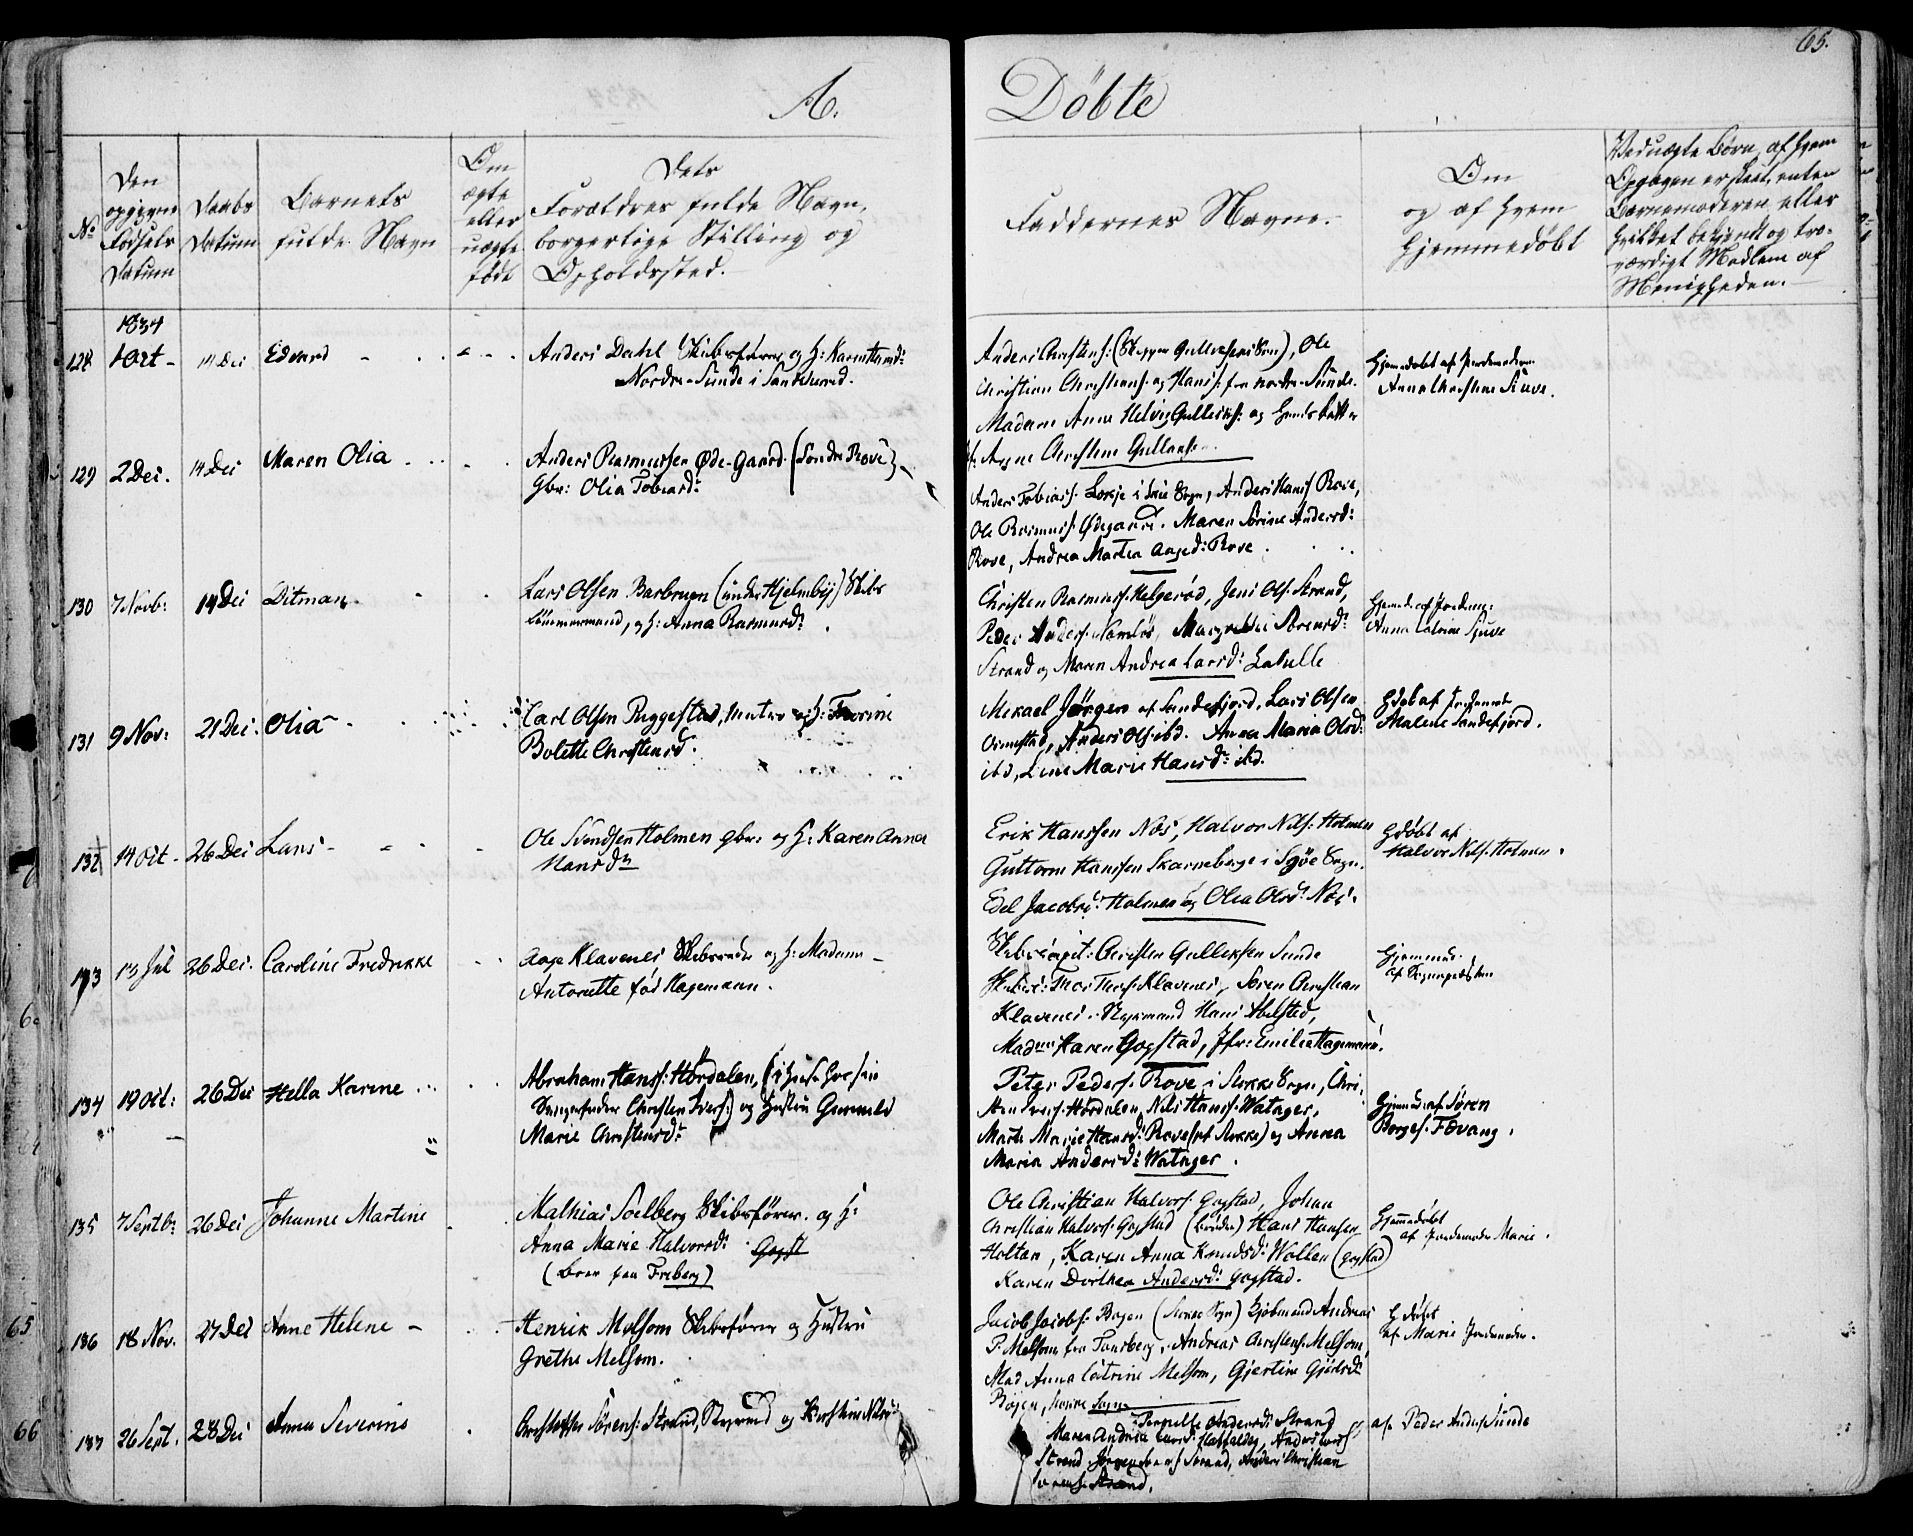 65.
A. Döbte
No
Den opgivne Fødsels Datum
Daabs Datum
Barnets fulde Navn
Om ægte eller uægte født
Dets Forældres fulde Navn, borgerlige Stilling og Opholdssted.
Faddernes Navne.
Om og af hvem hjemmedøbt
Ved uægte Børn, af hvem Opgaven er skeet, enten Barnemoderen eller hvilket bekjendt og troværdigt Medlem af Menigheden.
1834
128 1 Oct - 14 Dec Edvard
Anders Dahl Skibsfører og H:
Nordre-Sunde i Sandeherred.
Anders Christens: (Skipper Gullichsens Søn), Ole
Christian Christens: og Hans: fra nordre-Sunde.
Madam Anne Helvig Gullichs: og
Anne Christine
Hjemmedøbt af Jordemoderen
Anne Christine Siuve.
129 2 Dec. 14 Dec Maren Olia
Anders Rasmussen Øde-Gaard (Søndre Rove)
Gbr: Olia Tobiasd:
Anders Tobiass: i Sogn, Anders Hanss: Rove,
Ole Rasmuss: Ødegaard. Maren Sørine Andersd:
Rove, Andrea Martea Aagesd: Rove
130 7 Novb: 14 Dec Ditman
Lars Olsen Barbrogen (under Hjelmby) Skibs
tømmermand, og H: Anna Rasmusd:
Christen Rasmuss: Helgerød, Jens Ols: Strand,
Peder Anders: Namløs, Margrethe Sørensd:
Strand og Maren Andrea Larsd: Labelle
Hjemmed: af Jordem:
Anne Catrine Sjuve
131 9 Nov: 21 Dec: Olia
Carl Olsen Riggestad, Matros og H: Thorine
Bolette Christensd:
Mikael Jørgen af Sandefjord, Lars Olsen
Ormestad, Anders Ols: ibd. Anna Maria Olsd:
ibd, Line Marie Hansd: ibd.
Hdøbt af Jordemoder
Malene Sandefjord.
132 14 Oct - 26 Dec Lars
Ole Svendsen Holmen gbr: og H: Karen Anna
Hansd:
Erik Hanssen Næs, Halvor Nils: Holmen
Guttorm Hanssen Skarneberge i Sogn.
Edel Jacobsd: Holmen og Olea Olsd: Næs.
Hdøbt af
Halvor Nils: Holmen.
133 13 Jul 26 Dec. Caroline Fredrikke
Aage Klavenes Skibsreder og H: Madame
Antonette født Hagemann.
Skibscapit: Christen Gullichsen Sunde
Skibsf: Thor Thors: Klavenes, Søren Christian
Klavenes. Styrmand Hans Ibelsted,
Madme Karen Gogstad, Jfr: Emilie Hagemann.
Hjemmed.
af Sognepræsten
134 19 Oct: 26 Dec Hella Karine
Abraham Hanss: Hørdalen, (i Huse hos sin
Svigerfader Christen Ivers:) og Hustru Gunnild
Marie Christensd:
Peter Peders: Rove i Stokke Sogn, Chri:
Hørdalen, Nils Hanss: Watager,
Marte Marie Hansd: Rove (nt Stokke) og Anna
Maria Andersd: Watager.
Hjemmd: af Søren
Borges: Fevang.
135 7 Septb: 26 Dec Johanne Martine
Mathias Soelberg Skibsfører. og H:
Anna Marie Halvorsd: Gogst
(boer paa Freberg)
Ole Christian Halvors: Gogstad, Johan
Christian Halvors: Gogstad (brødre) Hans Hansen
Holtan, Karen Anna Knudsd: Wollen (gogstad)
Karen Dorthea Andersd: Gogstad.
Hjemmedøbt
af Jordemoder Marie.
136 18 Nov. 27 Dec Anne Helene
Henrik Melsom Skibsfører og Hustru
Grethe Melsom.
Jacob Jacobs: Bogen (Stokke Sogn) Kjøbmand Andreas
P. Melsom fra Tønsberg, Andreas Christens: Melsom,
Mad Anna Catrine Melsom, Gjertine
Bøgen, Stokke Sogn
H døbt
af Marie Jordemoder.
137 26 Sept. 28 Dec Anna Severine
Christopher Sørens: Strand, Styrmd og Kirstine Nilsd:
Pernille Andersd: Strand
Maren Andrea Larsd: Anders
Strand Jørgen Strand, Anders Christian
Sørens: Strand.
af Peder Anders: Sunde
65
66